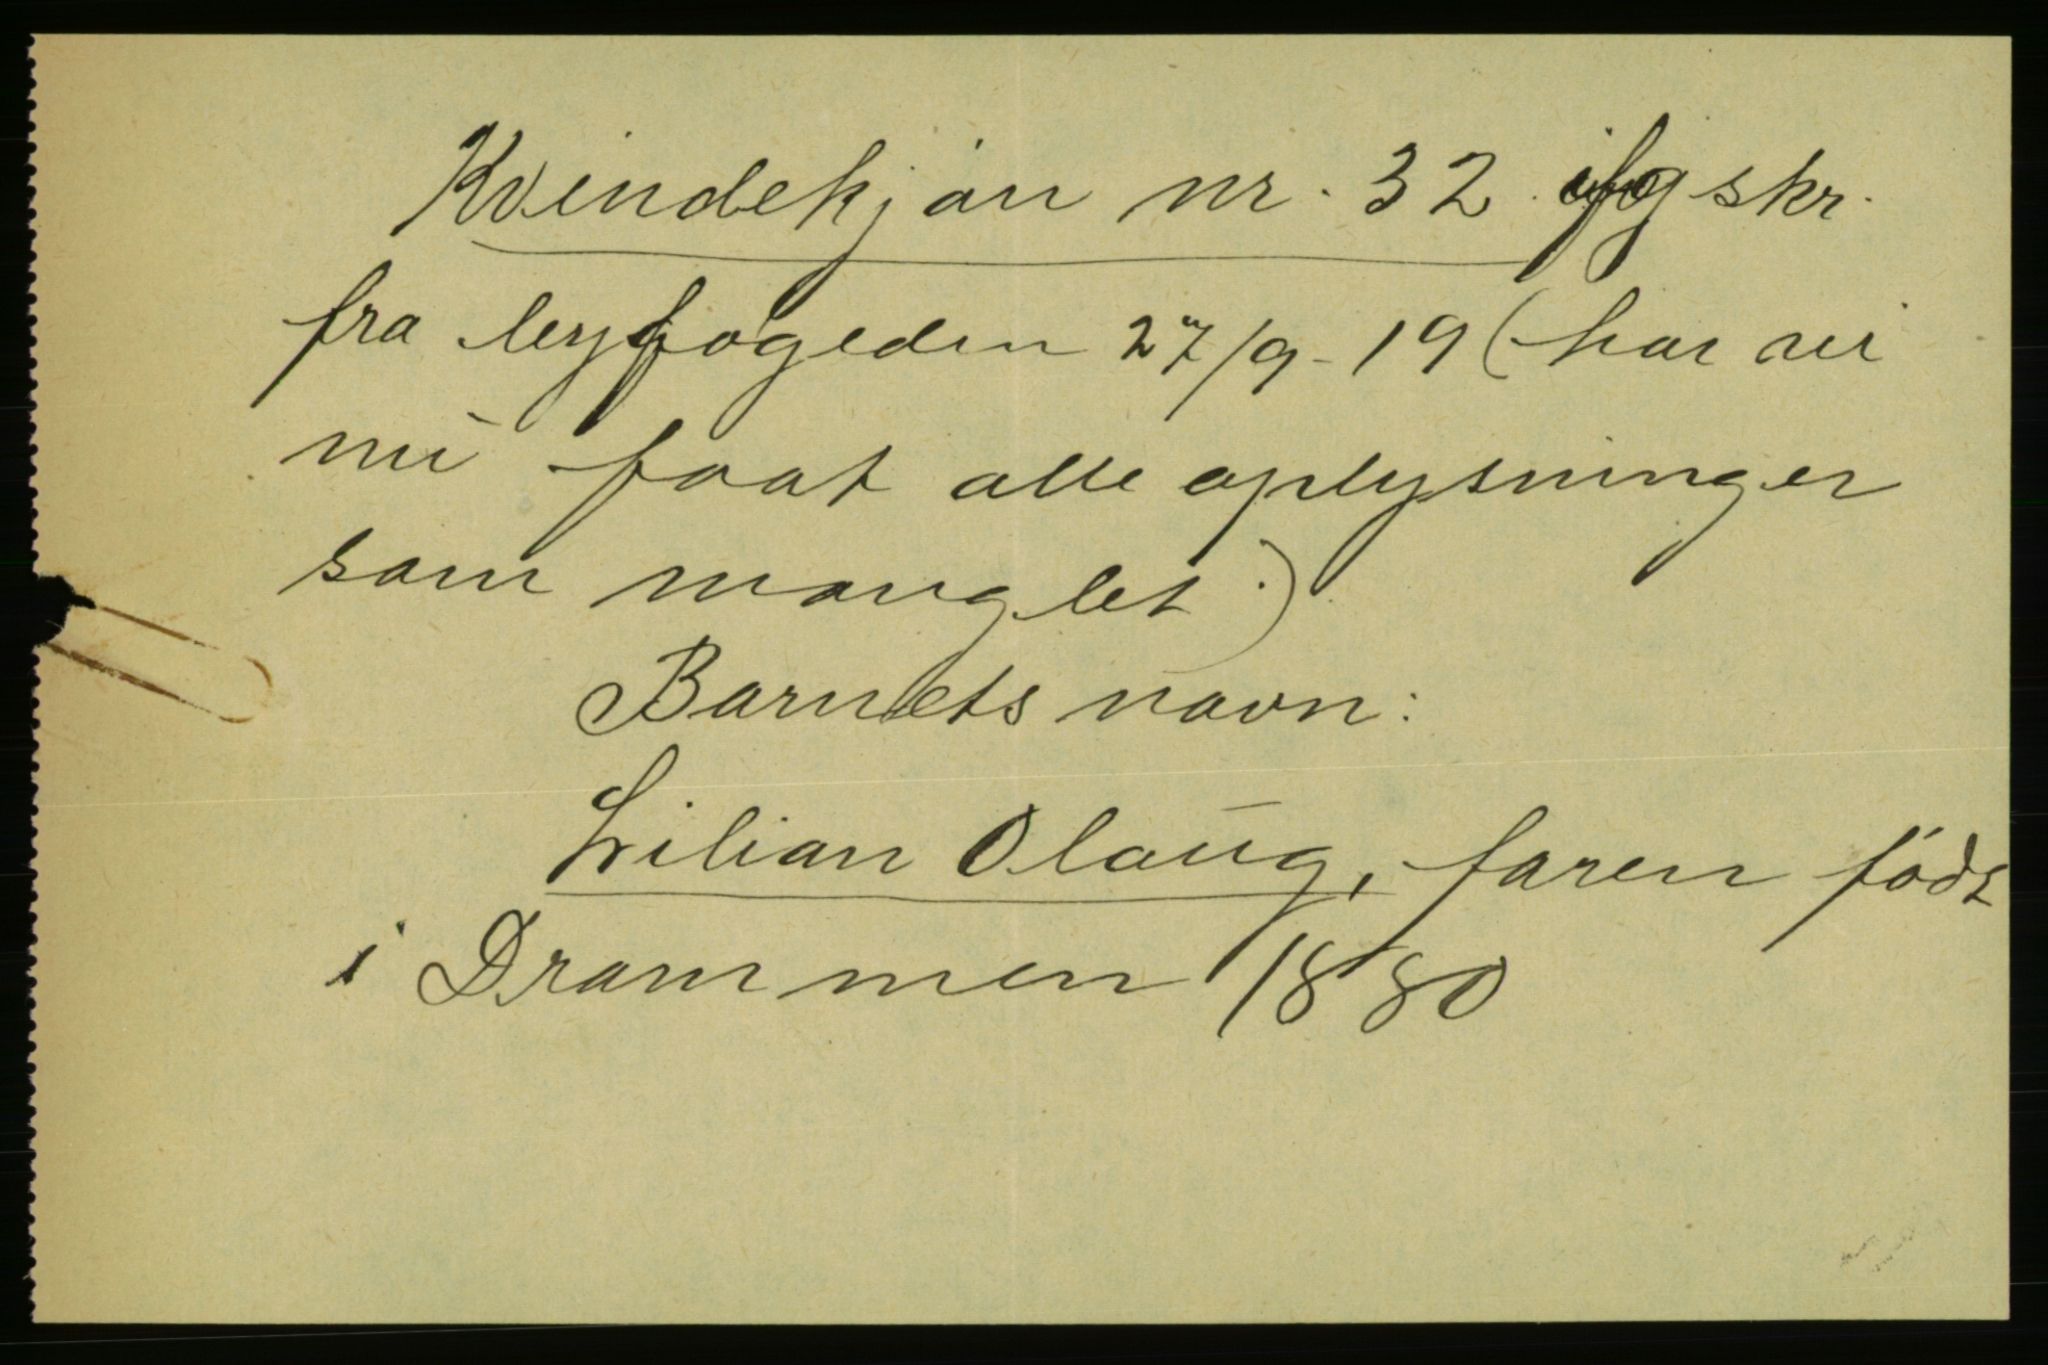 Kvindekjøn nr. 32. ifg skr.
fra byfogeden 27/9-19 (har vi
nu faat alle oplysninger
som manglet.)
Barnets navn:
Lilian Olaug, faren født
i Drammen 1880